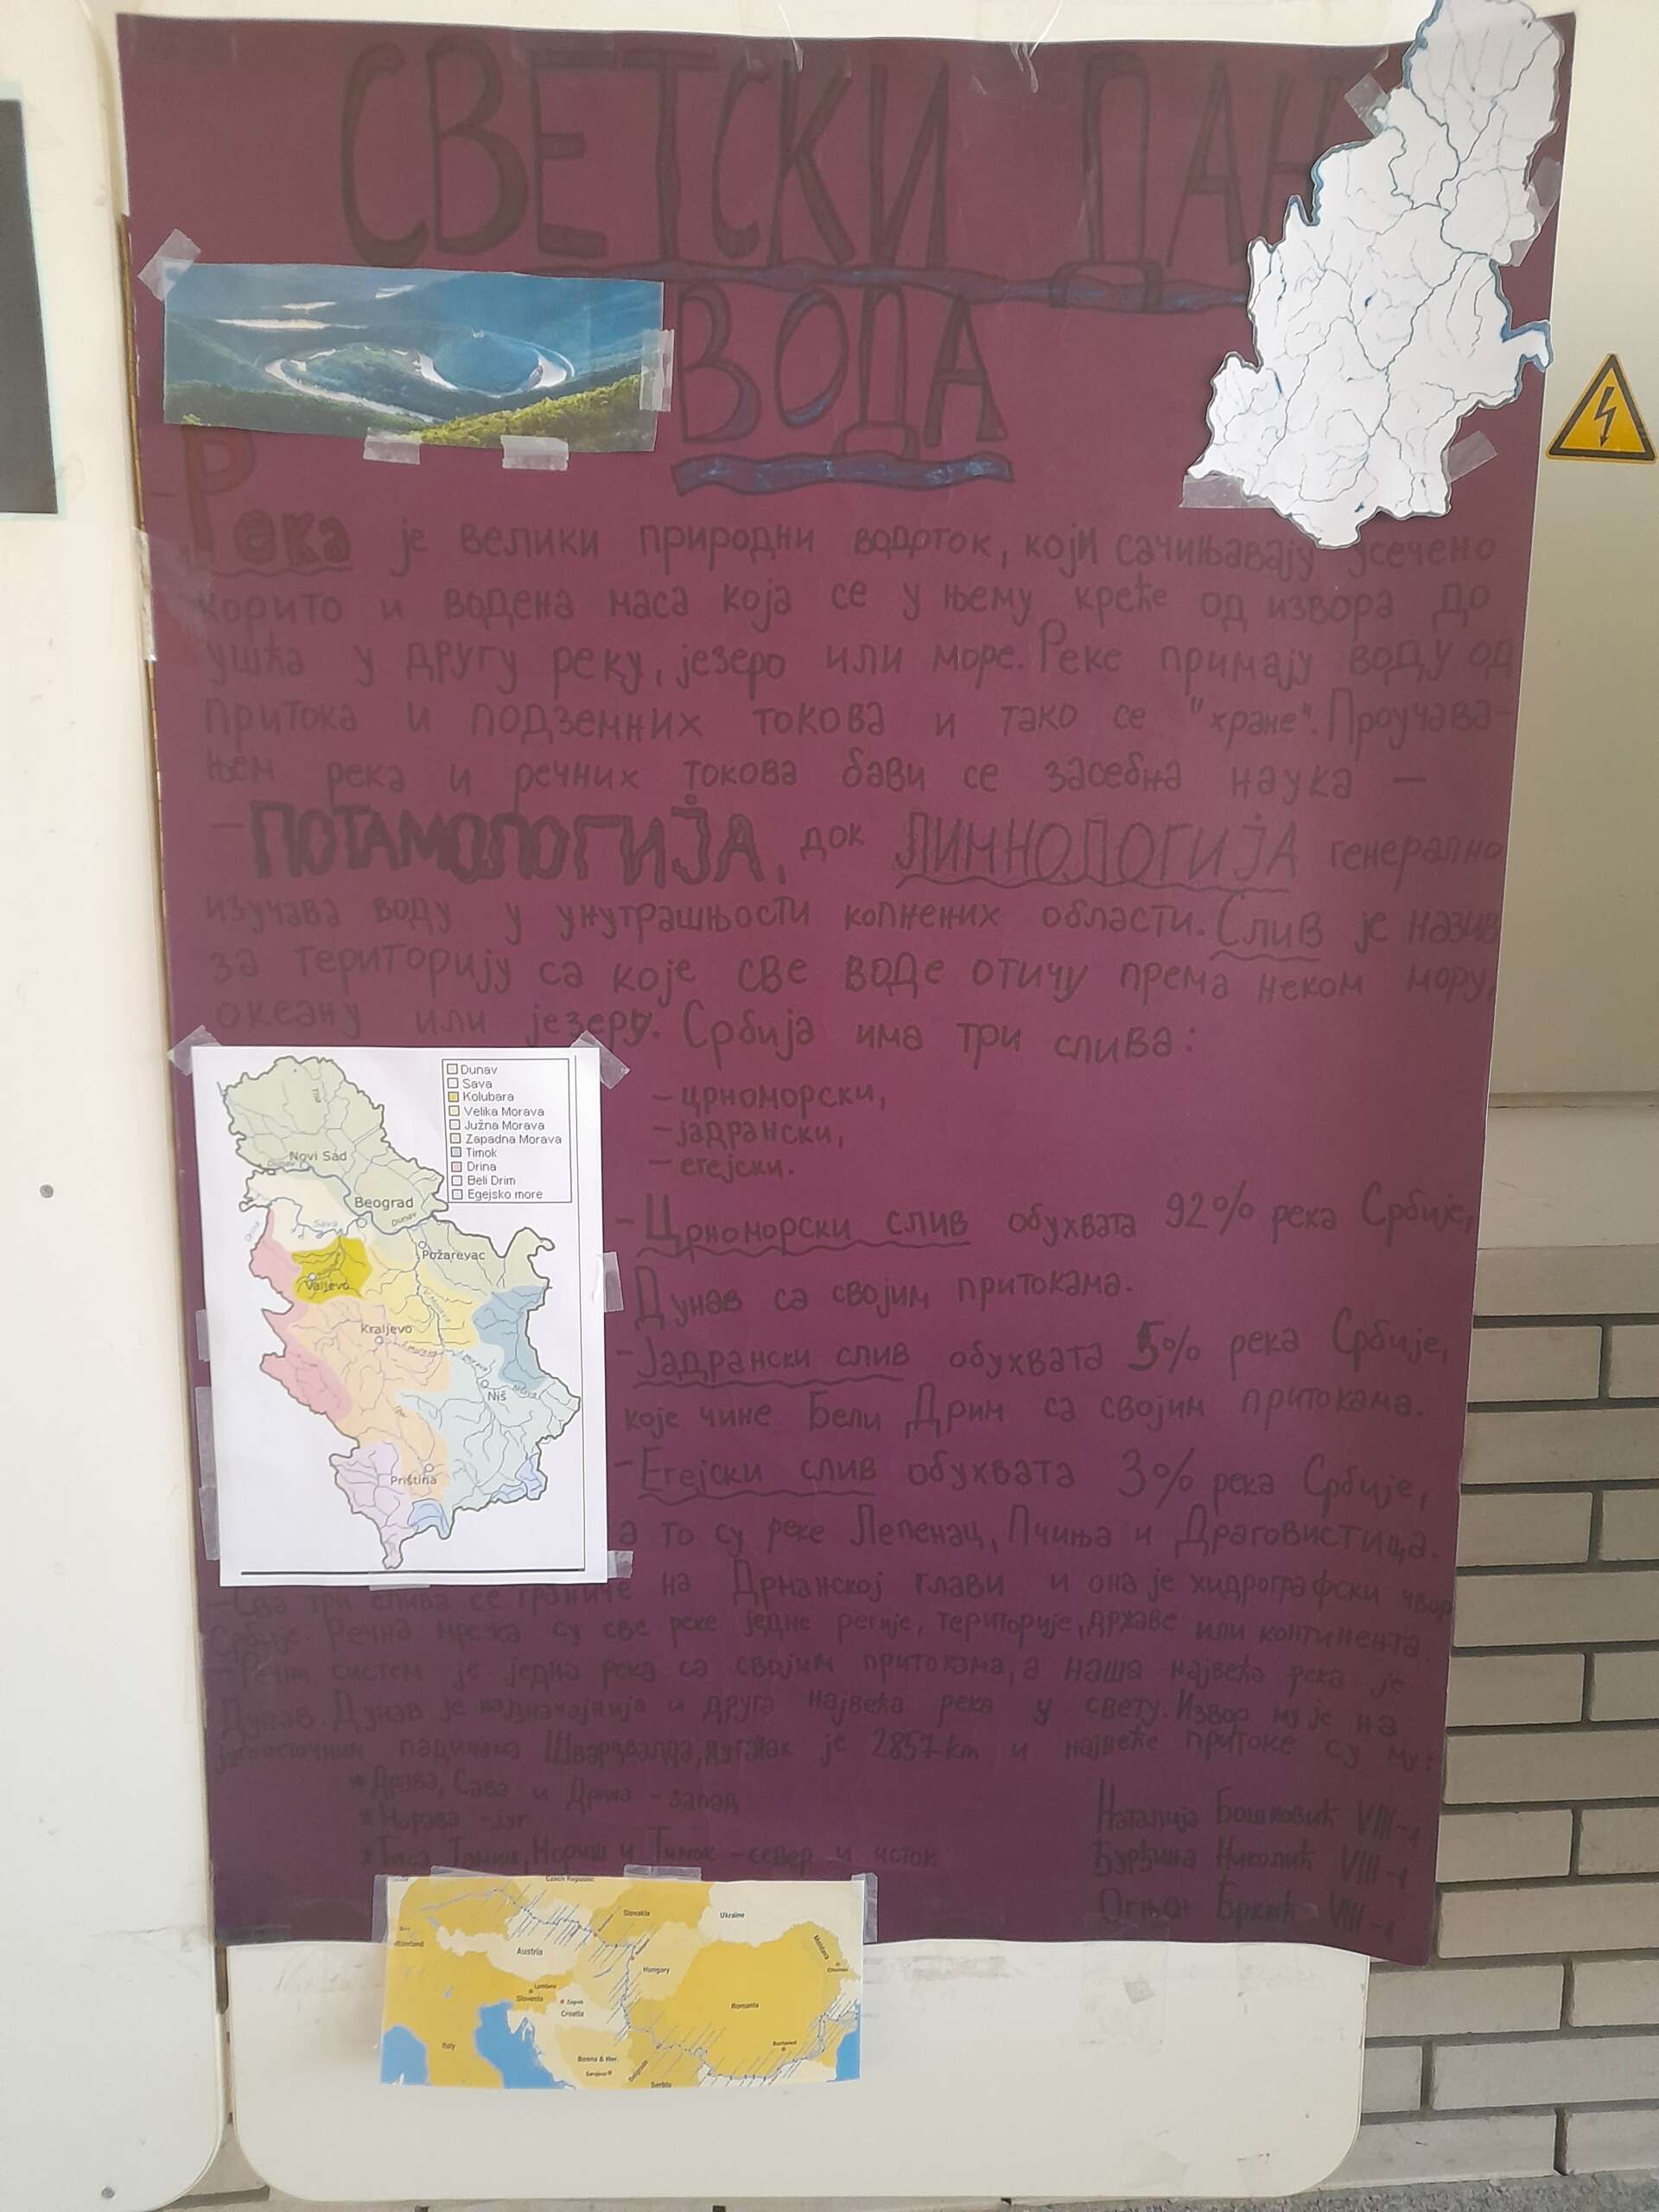 СВЕТСКИ ДАН
ВОДА
Река је велики природни водоток, који сачињавају усечено
корито и водена маса која се у њему креће од извора до
ушћа у другу реку, језеро или море. Реке примају воду од
притока и подземних токова и тако се "хране". Проучава-
њем река и речних токова бави се засебна наука —
- ПОТАМОЛОГИЈА, док ЛИМНОЛОГИЈА генерално
изучава воду у унутрашњости копнених области. Слив је назив
за територију са које све воде отичу према неком мору,
океану или језеру. Србија има три слива:
- црноморски,
- јадрански,
- егејски.
- Црноморски слив обухвата 92% река Србије,
Дунав са својим притокама.
- Јадрански слив обухвата 5% река Србије,
које чине Бели Дрим са својим притокама.
- Егејски слив обухвата 3% река Србије,
а то су реке Лепенац, Пчиња и Драговистица.
- Сва три слива се граниче на Дрманској глави и она је хидрографски чвор
Србије. Речна мрежа су све реке једне регије, територије, државе или континента.
- Речни систем је једна река са својим притокама, а наша највећа река је
Дунав. Дунав је најзначајнија и друга највећа река у свету. Извор му је на
југоисточним падинама Шварцвалда, дугачак је 2857 km и највеће притоке су му:
* Драва, Сава и Дрина - запад
* Морава - југ
* Тиса, Тамиш, Мориш и Тимок - север и исток
Наталија Бошковић VIII-1
Ђурђина Николић VIII-1
Огњен Бркић VIII-1
Dunav
Sava
Kolubara
Velika Morava
Južna Morava
Zapadna Morava
Timok
Drina
Beli Drim
Egejsko more
Novi Sad
Dunav
Beograd
Sava
Dunav
Drina
Požarevac
Valjevo
Kraljevo
Niš
Priština
Czech Republic
Slovakia
Ukraine
Austria
Moldova
Chisinau
Hungary
Ljubljana
Slovenia
Zagreb
Croatia
Romania
Bucharest
Italy
Bosna & Her.
Sarajevo
Belgrade
Serbia